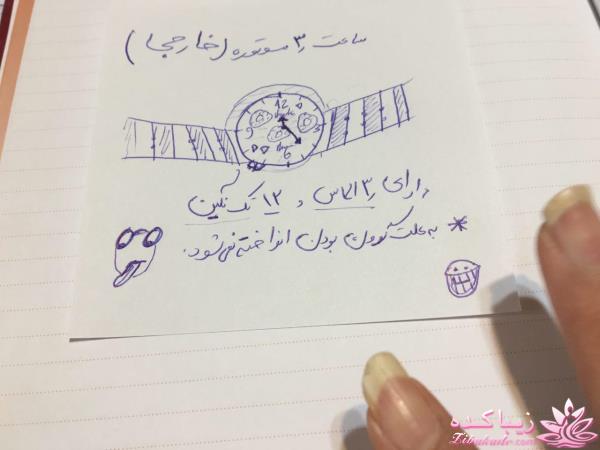 ساعت ۳ موتوره (خارججا)
12
3
6
9
دارای ۳ الماس و ۱۲ تک نگین
* به علت گرون بودن انداخته نمی‌شود.
زیباکده
Zibakade.com